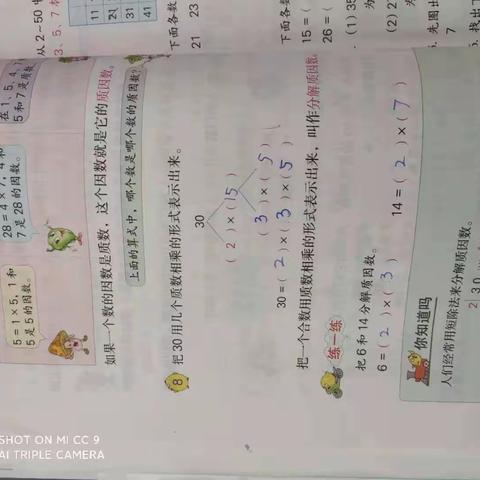 从2~50中
3、5、7本
11 2
31 41
下面各数
21 23
28=4×7,4和
7是28的因数。
在1、5、4、7
5和7是质数
5=1×5,1和
5是5的因数。
如果一个数的因数是质数,这个因数就是它的质因数。
上面的算式中,哪个数是哪个数的质因数?
8 把30用几个质数相乘的形式表示出来。
30
(2)×(15)
(3)×(5)
30=(2)×(3)×(5)
把一个合数用质数相乘的形式表示出来,叫作分解质因数。
练一练
把6和14分解质因数。
6=(2)×(3) 14=(2)×(7)
你知道吗
人们经常用短除法来分解质因数。
2 30
下面各数
15=(
26=(
(1)35
为
(2)2
为
先图出
7
找出
SHOT ON MI CC 9
AI TRIPLE CAMERA